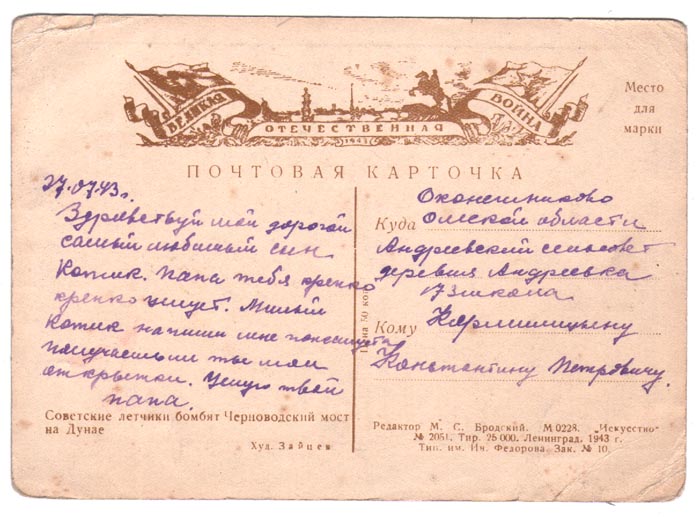 ВЕЛИКАЯ
ОТЕЧЕСТВЕННАЯ
ВОЙНА
1941
Место
для
марки
ПОЧТОВАЯ КАРТОЧКА
27.07.43 г.
Здравствуй мой дорогой
самый любимый сын
Котик. Папа тебя крепко
крепко целует. Милый
Котик напиши мне пожалуста
получаеш ли ты мои
открытки. Целую твой
папа.
Советские летчики бомбят Черноводский мост
на Дунае
Худ. Зайцев
Цена 50 коп.
Оконешниково
Куда Омской области
Андреевский сельсовет
деревня Андреевка
173 школа
Кому
Константину Петровичу.
Редактор М. С. Бродский. М 0228. „Искусство“
№ 2051. Тир. 25 000. Ленинград. 1943 г.
Тип. им. Ив. Федорова. Зак. № 10.